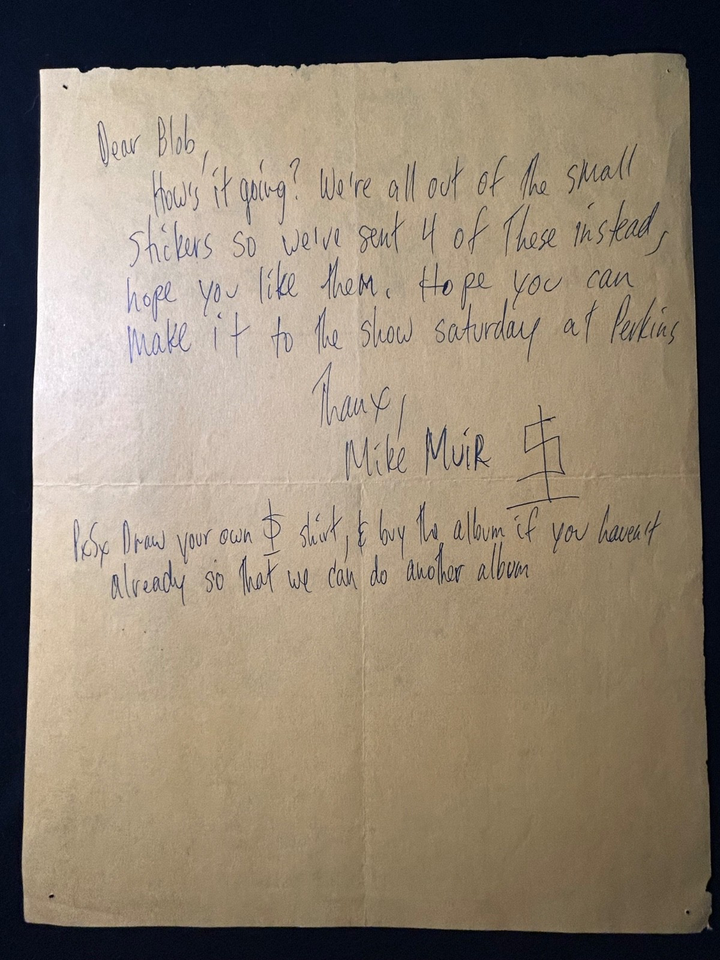 Dear Blob,
How's it going? We're all out of the small
stickers so we've sent 4 of These instead,
hope you like them. Hope you can
make it to the show saturday at Perkins
Thanx,
Mike Muir $
PxSx Draw your own $ shirt, & buy the album if you haven't
already so that we can do another album